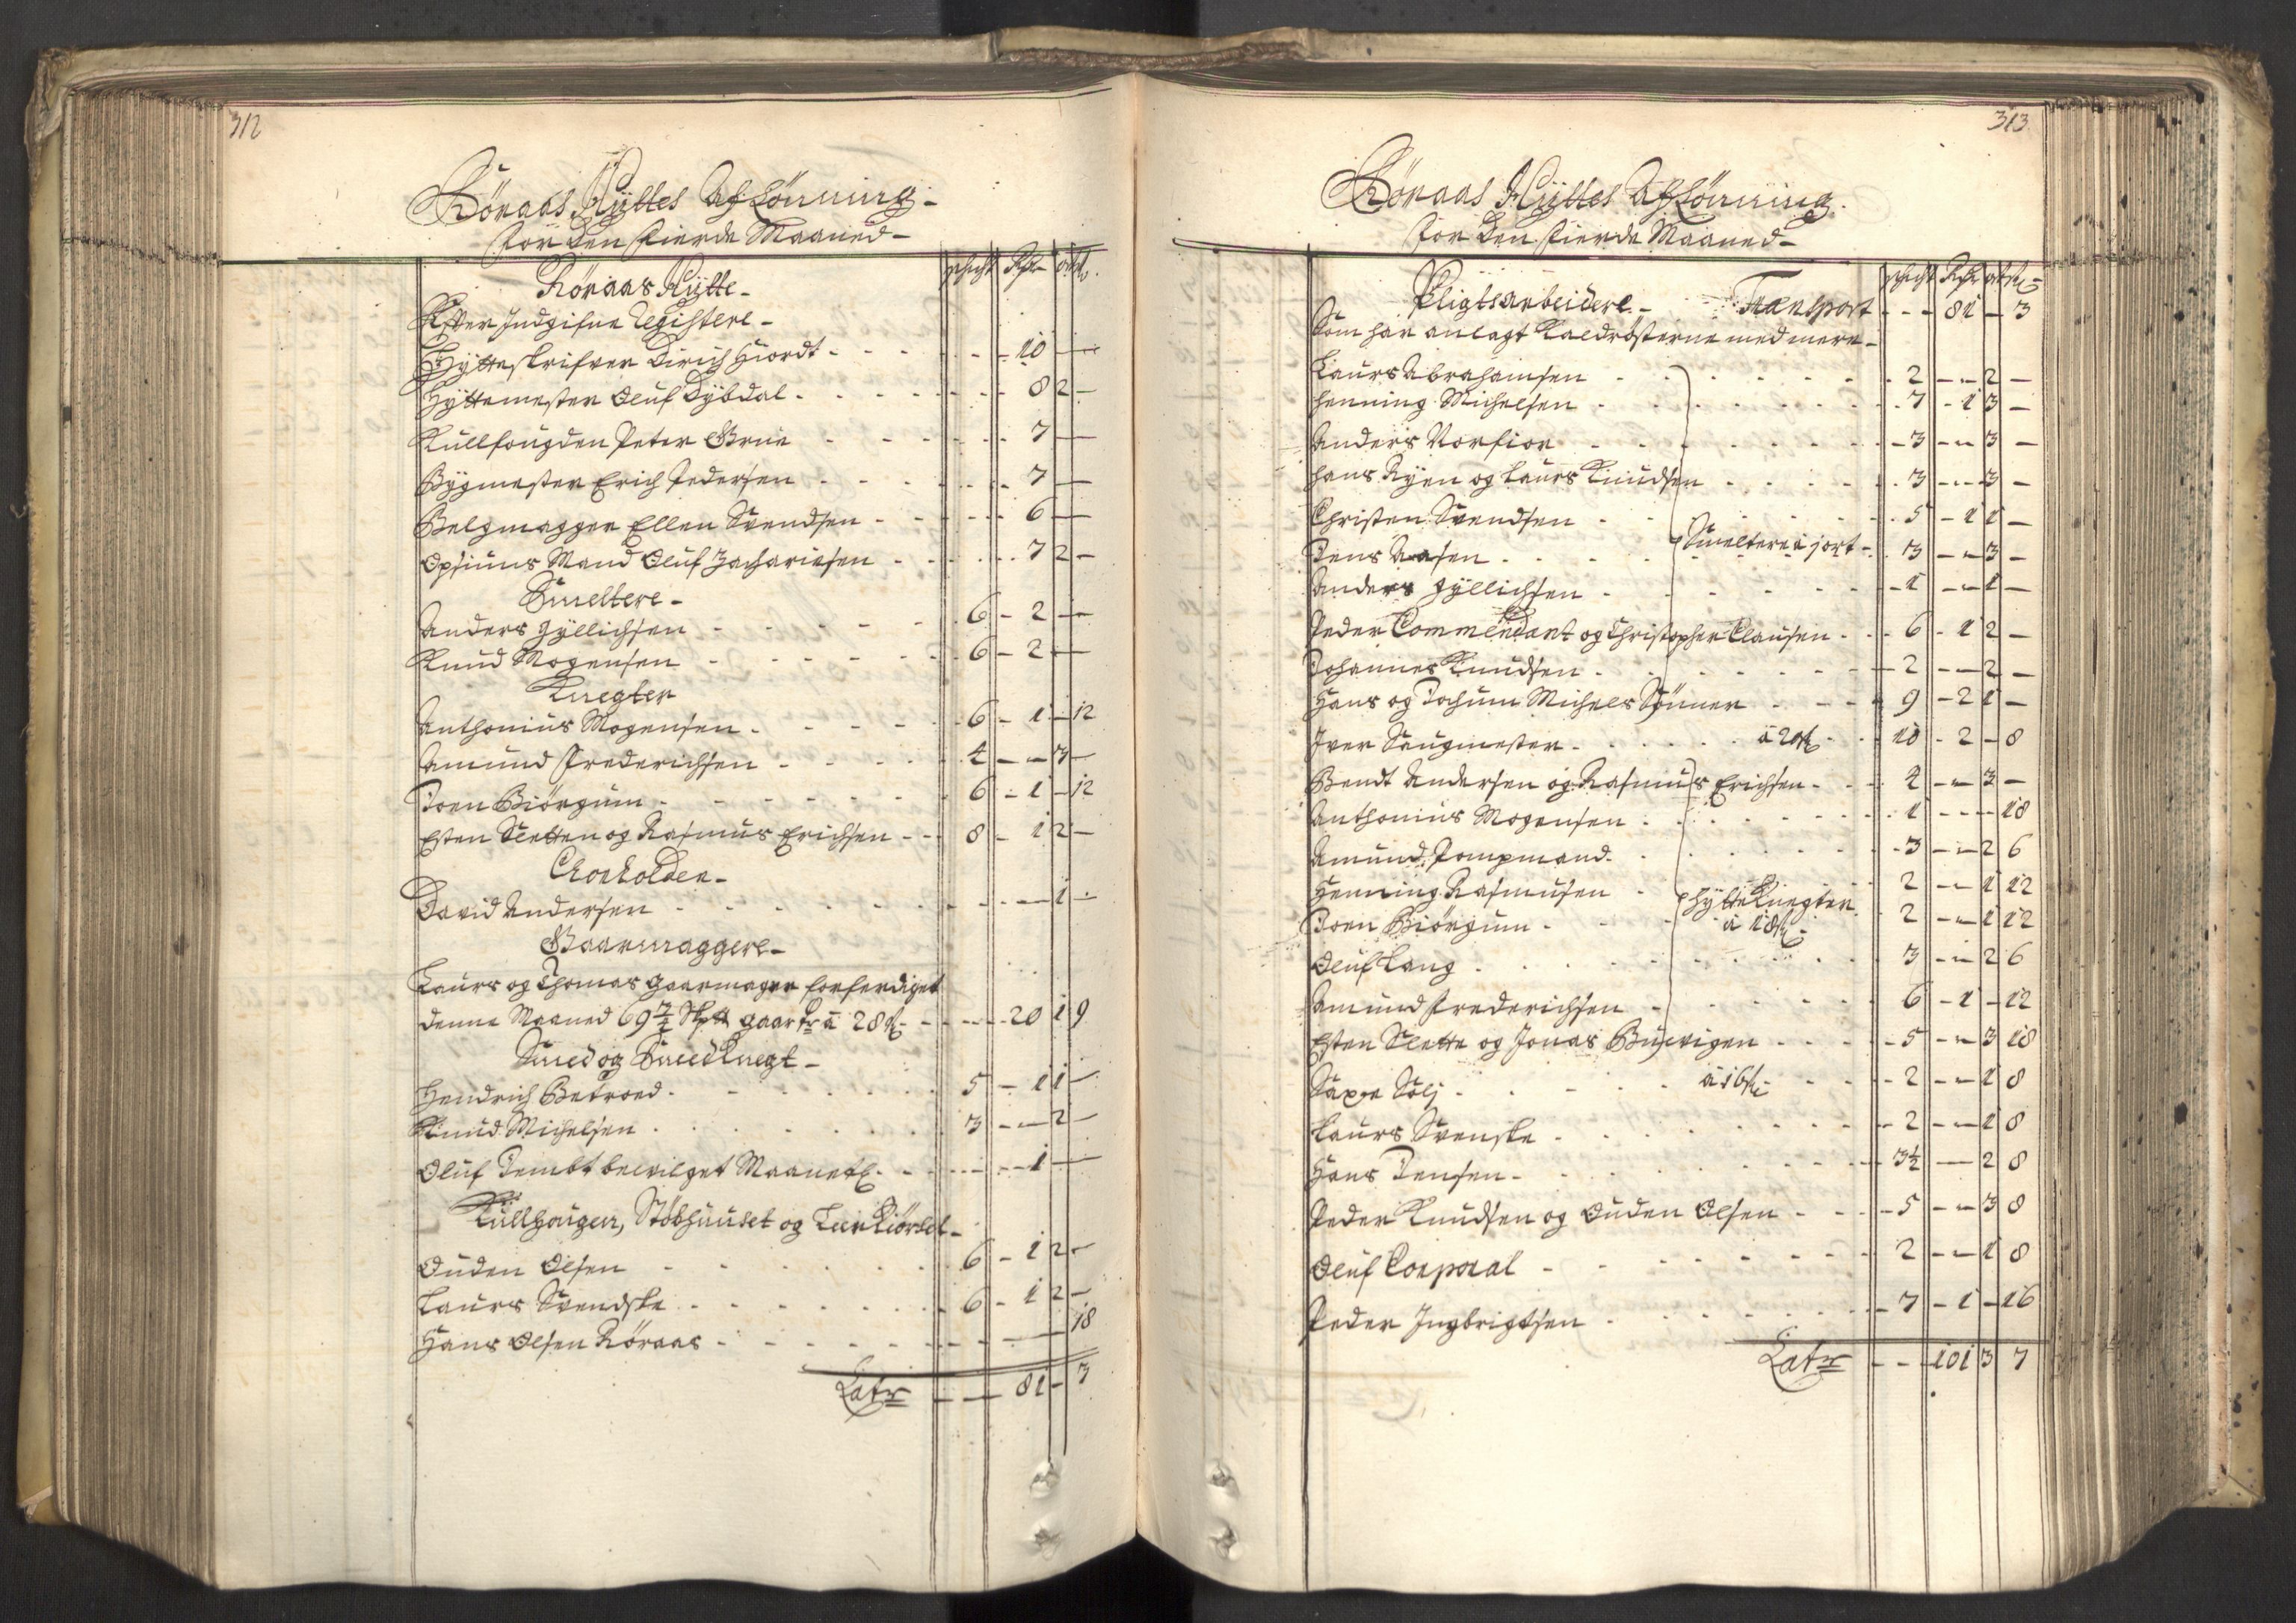 312
Röraas Hyttes Aflönning
for den fierde Maaned
Röraas Hytte
schicht Rdr ort ß
Efter Indgifne Registere
Hytteskrifver Dirich Hiordt - 10 -
Hyttemester Oluf Dybdal - 8 2 -
Kullfougden Peter Grue - 7 -
Bygmester Erich Pedersen - 7 -
Belgmagger Ellen Svendsen - 6 -
Opsiuns Mand Oluf Zachariesen - 7 2 -
Smeltere
Anders Gyllichsen - 6 - 2 -
Knud Mogensen - 6 - 2 -
Knegter
Anthonius Mogensen - 6 - 1 - 12
Amund Frederichsen - 4 - - 3 -
Joen Biörgum - 6 - 1 - 12
Esten Sletten og Rasmus Erichsen - 8 - 1 2 -
Chorholder
David Andersen - 1 -
Gaarmaggere
Laurs og Thomas gaarmager forferdiget
denne Maaned 69 3/4 Sk℔ gaar kr a 28 ß - 20 1 9
Smed og Smedknegt
Hendrich Betroed - 5 - 1 1 -
Knud Michelsen - 3 - - 2 -
Oluf Tembt bevilget Maanetl. - 1 -
Kullhougen, Stöbhuuset og
Ouden Olsen - 6 - 1 2 -
Laurs Svendske - 6 - 1 2 -
Hans Olsen Röraas - 18
Latr - 81 - 3
313
Röraas Hyttes Aflönning
for den fierde Maaned
schicht Rdr ort ß
Pligtsarbeidere - Transport - 81 - 3
Som har anlagt Kaldrösterne med mere
Laurs Abrahamsen - 2 - - 2 -
Henning Michelsen - 7 - 1 3 -
Anders Norfior - 3 - - 3 -
Hans Ryen og Laurs Knudsen - 3 - - 3 -
Christen Svendsen - 5 - 1 1 -
Jens Aasen - Smeltere a 1 ort - 3 - - 3 -
Anders Gyllichsen - 1 - - 1 -
Peder Commendant og Christopher Clausen - 6 - 1 2 -
Johannes Knudsen - 2 - - 2 -
Hans og Jochum Michels Sönner - 9 - 2 1 -
Iver Saugmester - a 20 ß - 10 - 2 - 8
Bendt Andersen og Rasmus Erichsen - 4 - - 3 -
Anthonius Mogensen - 1 - - - 18
Amund Pompmand - 3 - - 2 6
Henning Rasmusen - Hytteknegter - 2 - - 1 12
Joen Biörgum - a 18 ß - 2 - - 1 12
Oluf Lang - 3 - - 2 6
Amund Frederichsen - 6 - 1 - 12
Esten Slette og Jonas - 5 - - 3 18
a 16 ß - 2 - - 1 8
Laurs Svenske - 2 - - 1 8
Hans Jensen - 3 1/2 - 2 8
Peder Knudsen og Ouden Olsen - 5 - - 3 8
Oluf Corporal - 2 - - 1 8
Peder Ingbrigtsen - 7 - 1 - 16
Latr - - 101 3 7